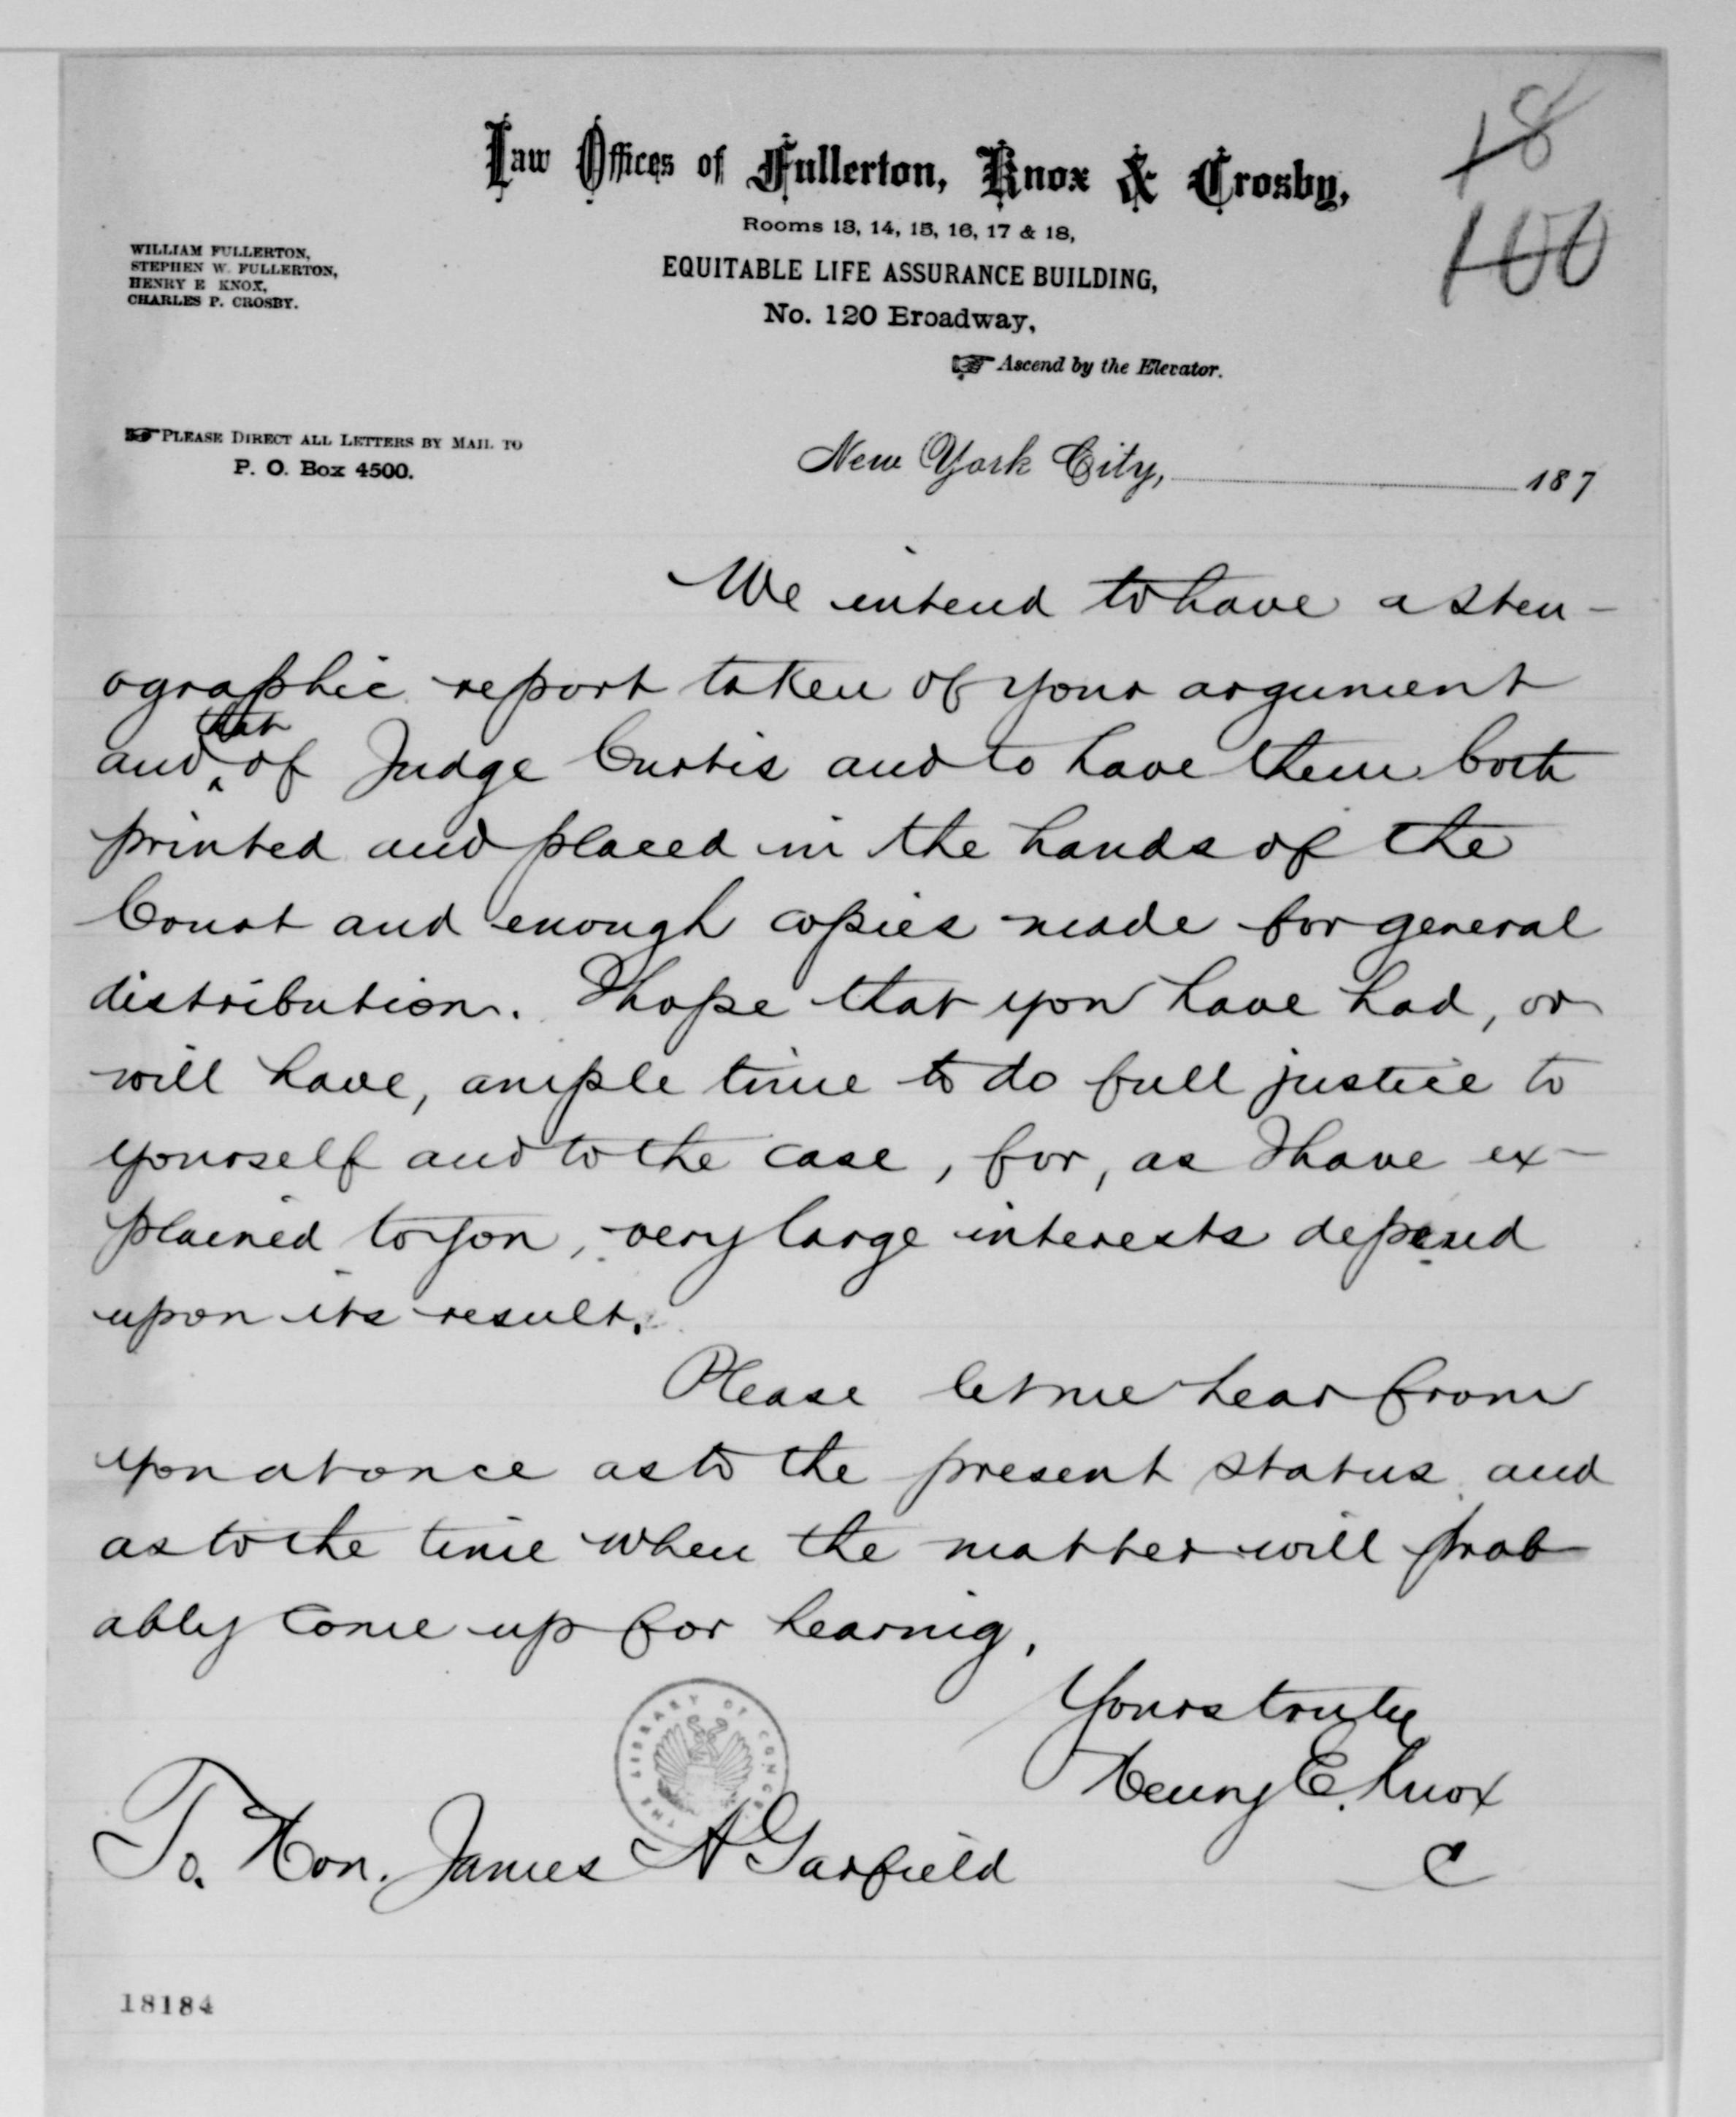 18
100
Law Offices of Fullerton, Knox & Crosby,
Rooms 13, 14, 15, 16, 17 & 18,
WILLIAM FULLERTON,
STEPHEN W. FULLERTON,
HENRY E KNOX,
CHARLES P. CROSBY.
EQUITABLE LIFE ASSURANCE BUILDING,
No. 120 Broadway,
Ascend by the Elevator.
PLEASE DIRECT ALL LETTERS BY MAIL TO
P. O. Box 4500.
New York City, 187
We intend to have a sten-
ographic report taken of your argument
that
and ^ of Judge Curtis and to have them both
printed and placed in the hands of the
Court and enough copies made for general
distribution. I hope that you have had, or
will have, ample time to do full justice to
yourself and to the case, for, as I have ex-
plained to you, very large interests depend
upon its result.
Please let me hear from
you at once as to the present status and
as to the time when the matter will prob
ably come up for hearing.
Yours truly
Henry E. Knox
C
To. Hon. James A Garfield
THE LIBRARY OF CONGRESS
18184